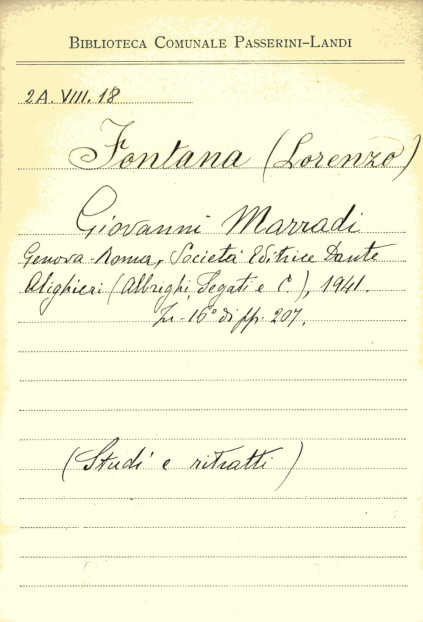 BIBLIOTECA COMUNALE PASSERINI-LANDI
2A. VIII. 18
Fontana (Lorenzo)
Giovanni Marradi
Genova-Roma, Società Editrice Dante
Alighieri (Albrighi, Segati e C.), 1941.
In-16° di pp. 207.
(Studi e ritratti)